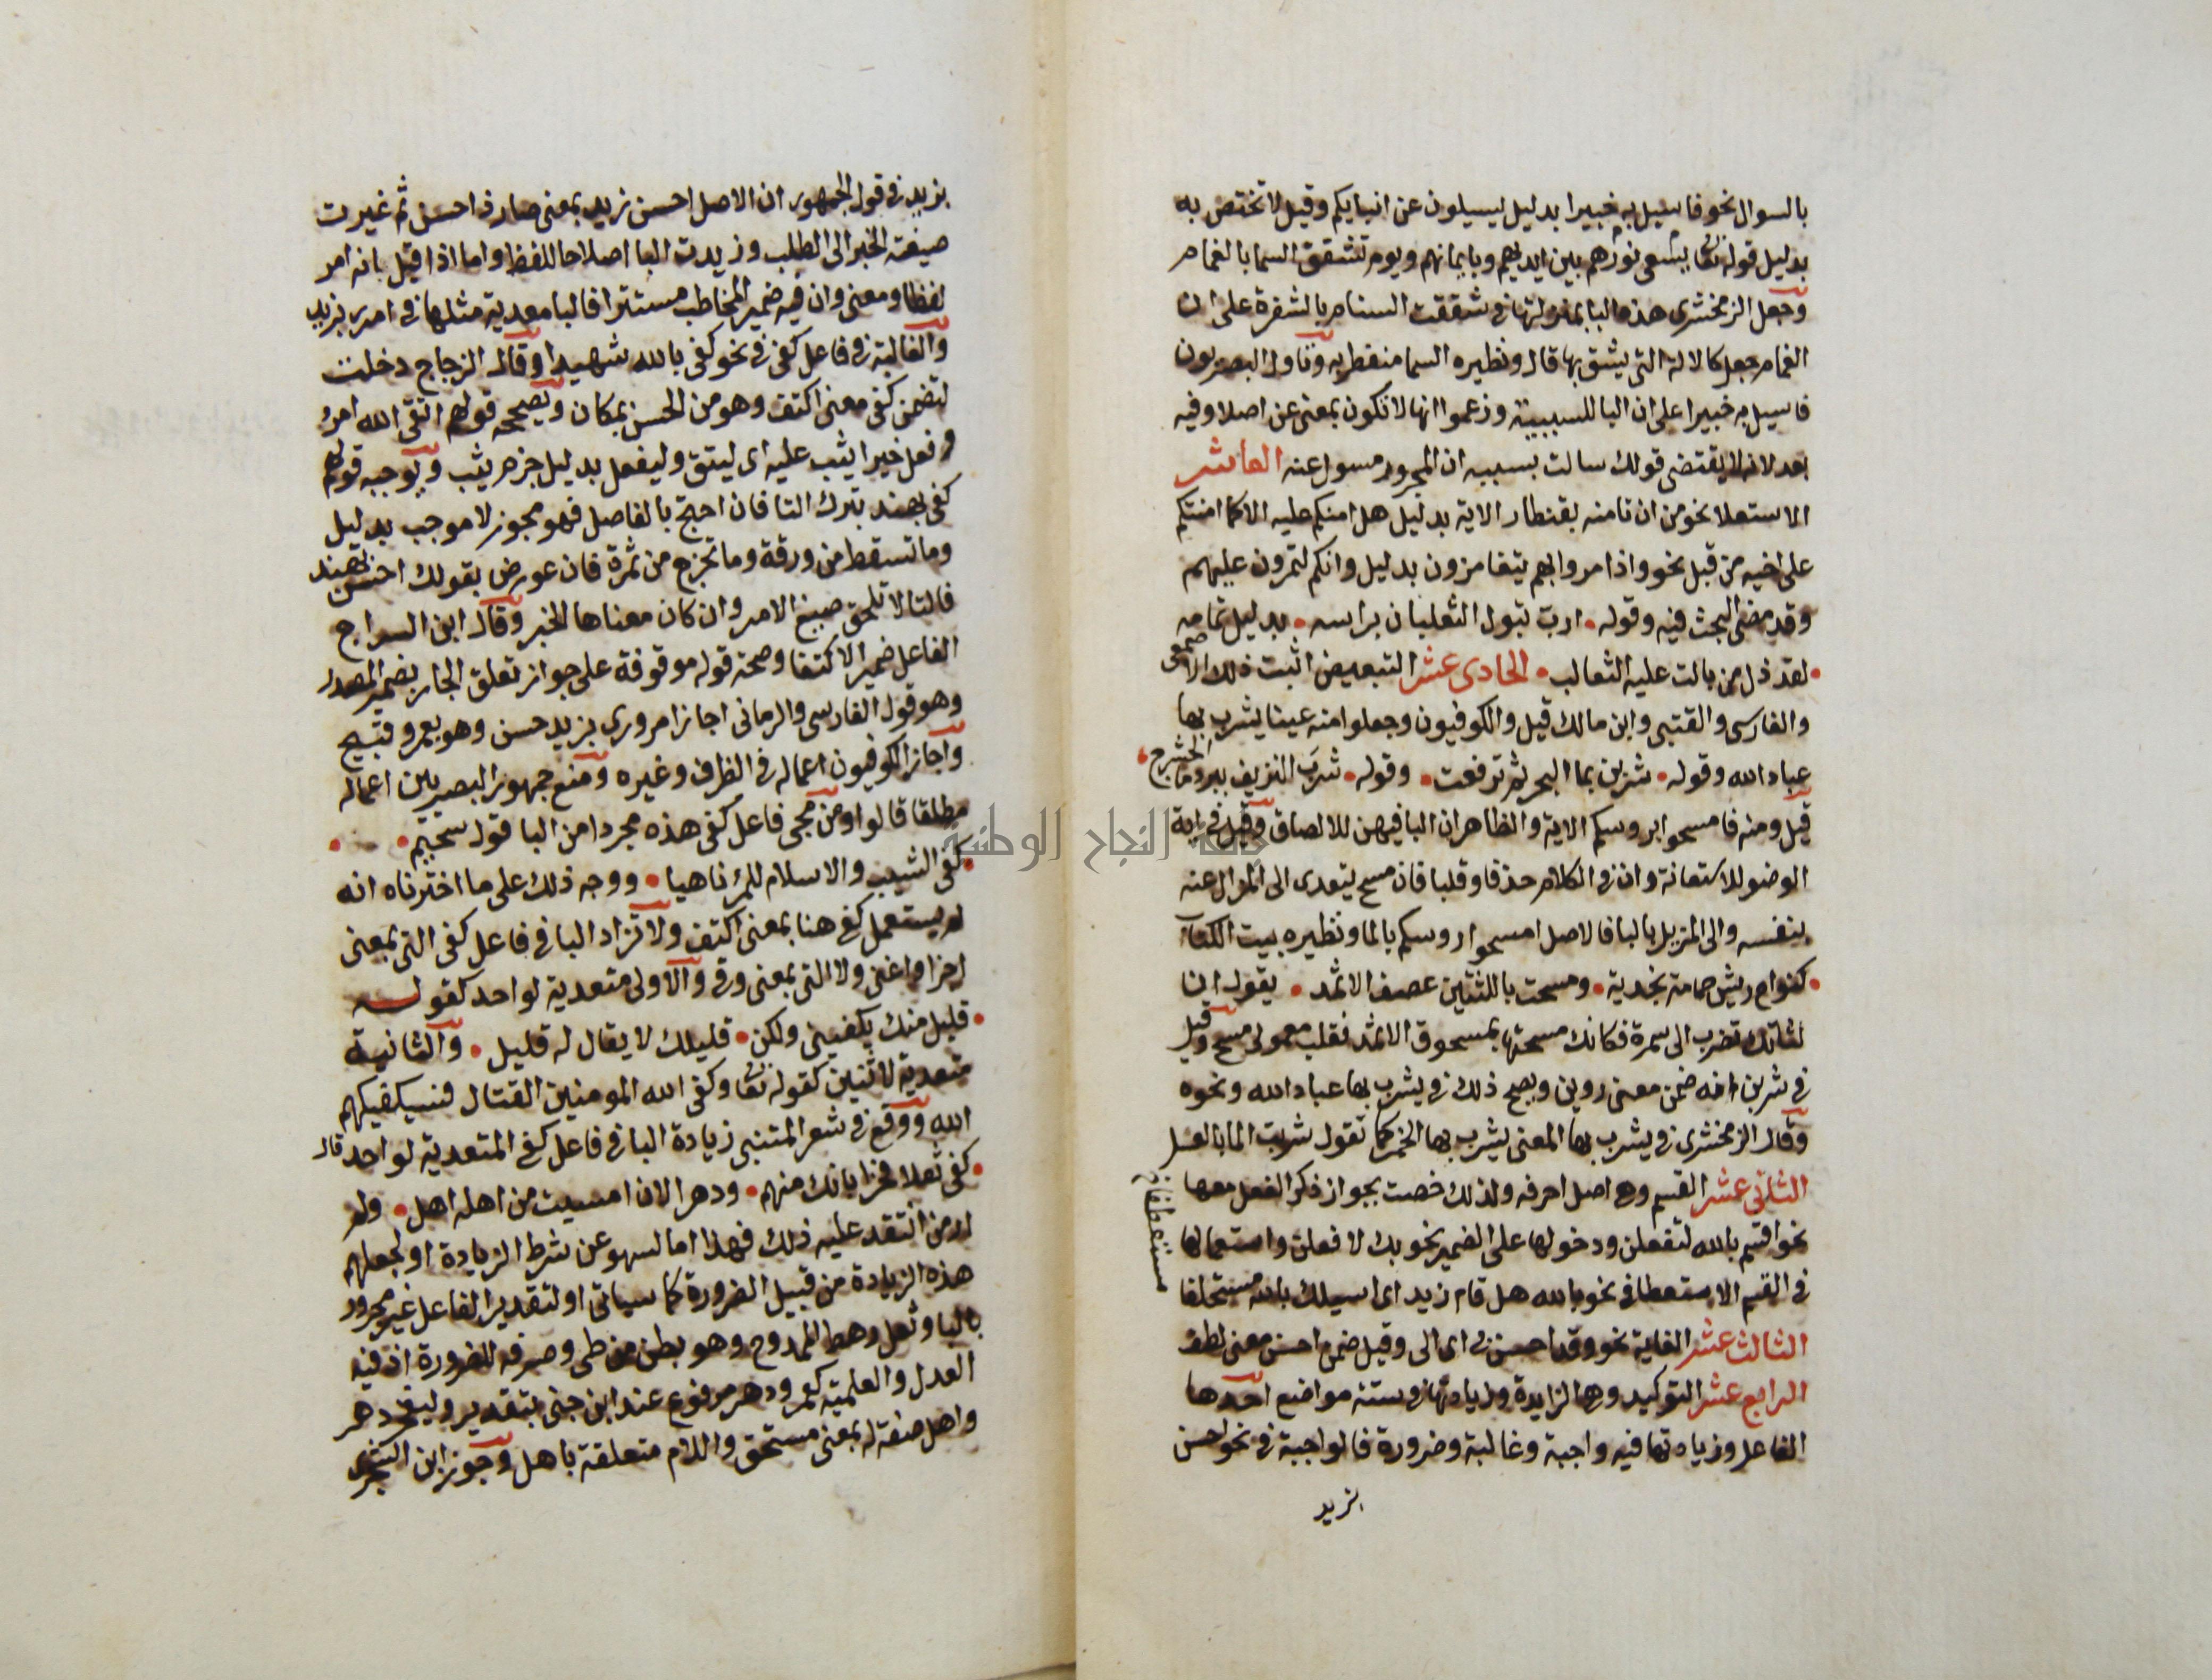 بالسوال نحو فاسيل به خبيرا بدليل يسيلون عن انبايكم وقيل لا تختص به
بدليل قوله تعا يسعى نورهم بين ايديهم وبايمانهم ويوم تشقق السما بالغمام
وجعل الزمخشرى هذه البا بمنزلتها في شققت السنام بالشفرة على ان
الغمام جعل كالالة التى يشق بها قال ونظيره السما منفطر به وتاول البصريون
فاسيل به خبيرا على ان البا للسببية وزعموا انها لا تكون بمعنى عن اصلا وفيه
بعد لانه لا يقتضى قولك سالت بسببه ان المجرور مسول عنه العاشر
الاستعلا نحو من ان تامنه بقنطار الاية بدليل هل امنكم عليه الا كما امنتكم
على اخيه من قبل نحو واذا مروا بهم يتغامزون بدليل وانكم لتمرون عليهم
وقد مضى البحث فيه وقوله • ارب يبول الثعلبان براسه • بدليل تمامه
• لقد ذل من بالت عليه الثعالب • الحادى عشر التبعيض اثبت ذلك الاصمعى
والفارسى والقتبى وابن مالك قيل والكوفيون وجعلوا منه عينا يشرب بها
عباد الله وقوله • شربن بما البحر ثم ترفعت • وقوله • شرب النزيف ببرد ما الحشرج •
قيل ومنه فامسحوا بروسكم الاية والظاهر ان البا فيهن للالصاق وقيل في اية
الوضو للاستعانة وان في الكلام حذفا وقلبا فان مسح يتعدى الى المزال عنه
بنفسه والى المزيل بالبا فالاصل امسحوا روسكم بالما ونظيره بيت الكتاب
• كنواح ريش حمامة نجدية • ومسحت باللثتين عصف الاثمد • يقول ان
لثاتك تضرب الى سمرة فكانك مسحتها بمسحوق الاثمد فقلب معمولى مسح وقيل
في شربن انه ضمن معنى روين ويصح ذلك في يشرب بها عباد الله ونحوه
وقال الزمخشرى في يشرب بها المعنى يشرب بها الخمر كما تقول شربت الما بالعسل
الثانى عشر القسم وهى اصل احرفه ولذلك خصت بجواز ذكر الفعل معها
نحو اقسم بالله لتفعلن ودخولها على الضمير نحو بك لافعلن واستعمالها
في القسم الاستعطافى نحو بالله هل قام زيد اى اسيلك بالله مستحلفا
مستعطفا
الثالث عشر الغاية نحو وقد احسن بى اى الى وقيل ضمن احسن معنى لطف
الرابع عشر التوكيد وهى الزايدة وزيادتها في ستة مواضع احدها
الفاعل وزيادتها فيه واجبة وغالبة وضرورة فالواجبة في نحو احسن
بزيد
بزيد في قول الجمهور ان الاصل احسن زيد بمعنى صار ذا حسن ثم غيرت
صيغة الخبر الى الطلب وزيدت البا اصلاحا للفظ واما اذا قيل بانه امر
لفظا ومعنى وان فيه ضمير المخاطب مستترا فالبا معدية مثلها في امرر بزيد
والغالبة في فاعل كفى في نحو كفى بالله شهيدا وقال الزجاج دخلت
لتضمن كفى معنى اكتف وهو من الحسن بمكان ويصححه قولهم اتقى الله امرؤ
وفعل خيرا يثب عليه اى ليتق وليفعل بدليل جزم يثب ويوجبه قولهم
كفى بهند بترك التا فان احتج بالفاصل فهو مجوز لا موجب بدليل
وما تسقط من ورقة وما تخرج من ثمرة فان عورض بقولك احسن بهند
فالتا لا تلحق صيغ الامر وان كان معناها الخبر وقال ابن السراج
الفاعل ضمير الاكتفا وصحة قوله موقوفة على جواز تعلق الجار بضمير المصدر
وهو قول الفارسى والرمانى اجازا مرورى بزيد حسن وهو بعمرو قبيح
واجاز الكوفيون اعماله في الظرف وغيره ومنع جمهور البصريين اعماله
مطلقا قالوا ومن مجى فاعل كفى هذه مجردا من البا قول سحيم •
• كفى الشيب والاسلام للمرء ناهيا • ووجه ذلك على ما اخترناه انه
لم يستعمل كفى هنا بمعنى اكتف ولا تزاد البا في فاعل كفى التى بمعنى
اجزا واغنى ولا التى بمعنى وقى والاولى متعدية لواحد كقوله
• قليل منك يكفينى ولكن • قليلك لا يقال له قليل • والثانية
متعدية لاثنين كقوله تعا وكفى الله المومنين القتال فسيكفيكهم
الله ووقع في شعر المتنبى زيادة البا في فاعل كفى المتعدية لواحد قال
• كفى ثعلا فخرا بانك منهم • ودهر الان امسيت من اهله اهل • ولم
ار من انتقد عليه ذلك فهذا اما لسهو عن شرط الزيادة او لجعلهم
هذه الزيادة من قبيل الضرورة كما سياتى او لتقدير الفاعل غير مجرور
بالبا وثعل رهط الممدوح وهو بطن من طى وصرفه للضرورة اذ فيه
العدل والعلمية كعمر ودهر مرفوع عند ابن جنى بتقدير وليفخر دهر
واهل صفة له بمعنى مستحق واللام متعلقة باهل وجوز ابن الشجرى
جامعة النجاح الوطنية